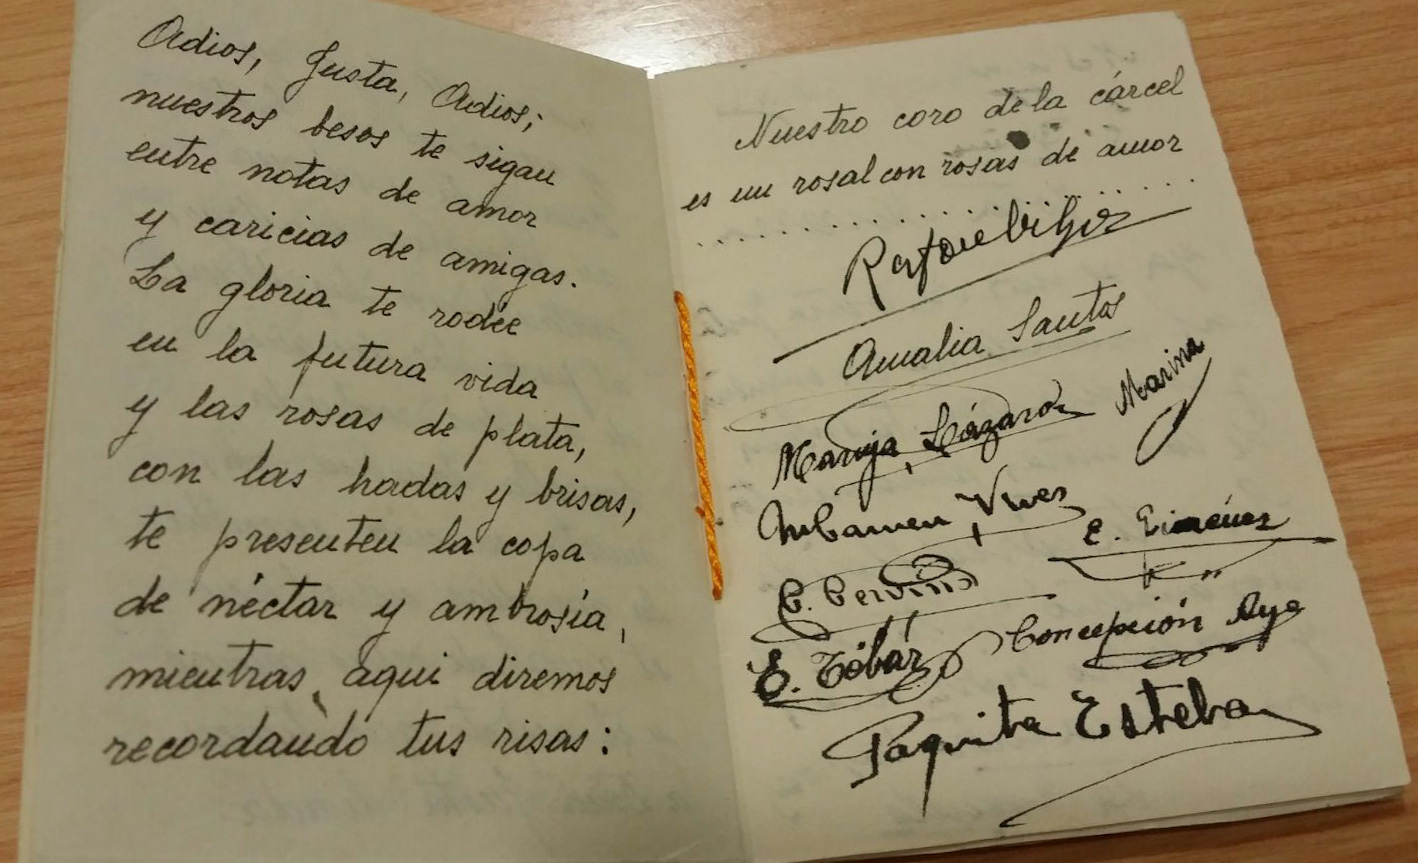 Adios, Justa, Adios;
nuestros besos te sigan
entre notas de amor
y caricias de amigas.
La gloria te rodée
en la futura vida
y las rosas de plata,
con las hadas y brisas,
te presenten la copa
de néctar y ambrosía,
mientras, aqui diremos
recordando tus risas:
Nuestro coro de la cárcel
es un rosal con rosas de amor
. . . . . . . . . . . . . . . . . . . .
Amalia Santos
Maruja Lázaro
Marina
Vives
E. Giménez
E. Tóbar
Concepción
Paquita Esteban